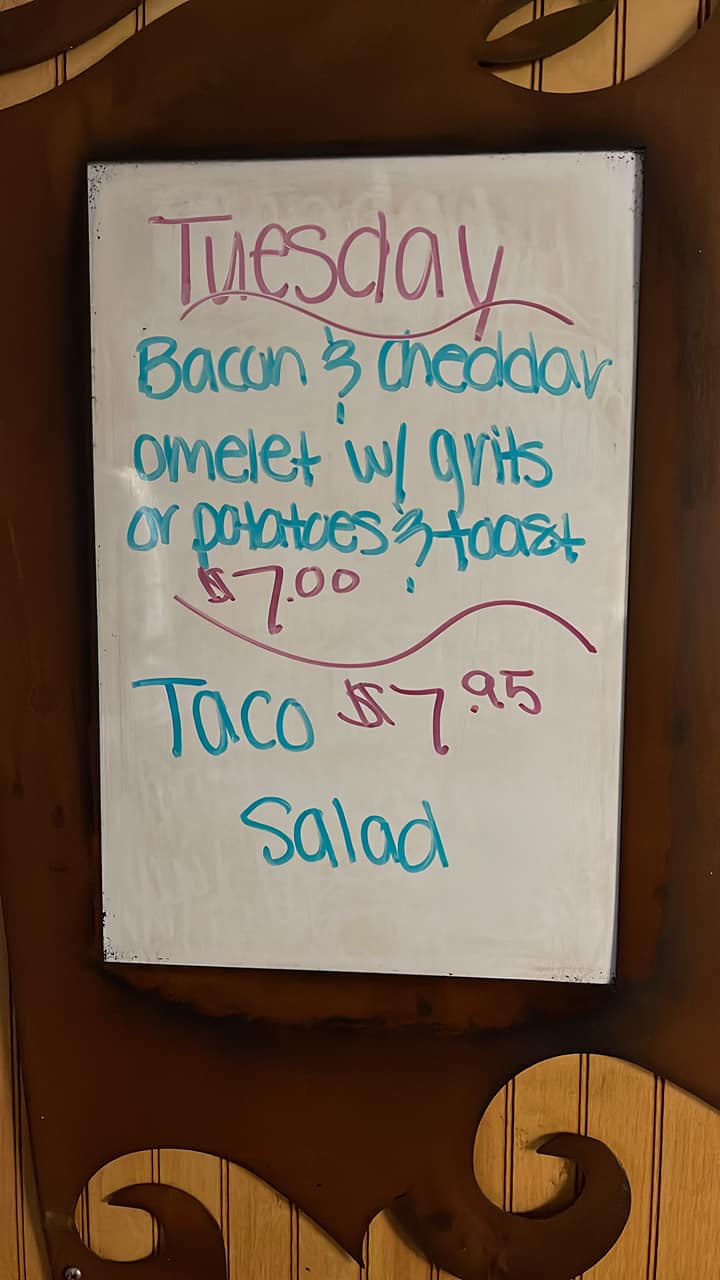 Tuesday
Bacon & Cheddar
omelet w/ grits
or potatoes & toast
$7.00
Taco $7.95
Salad